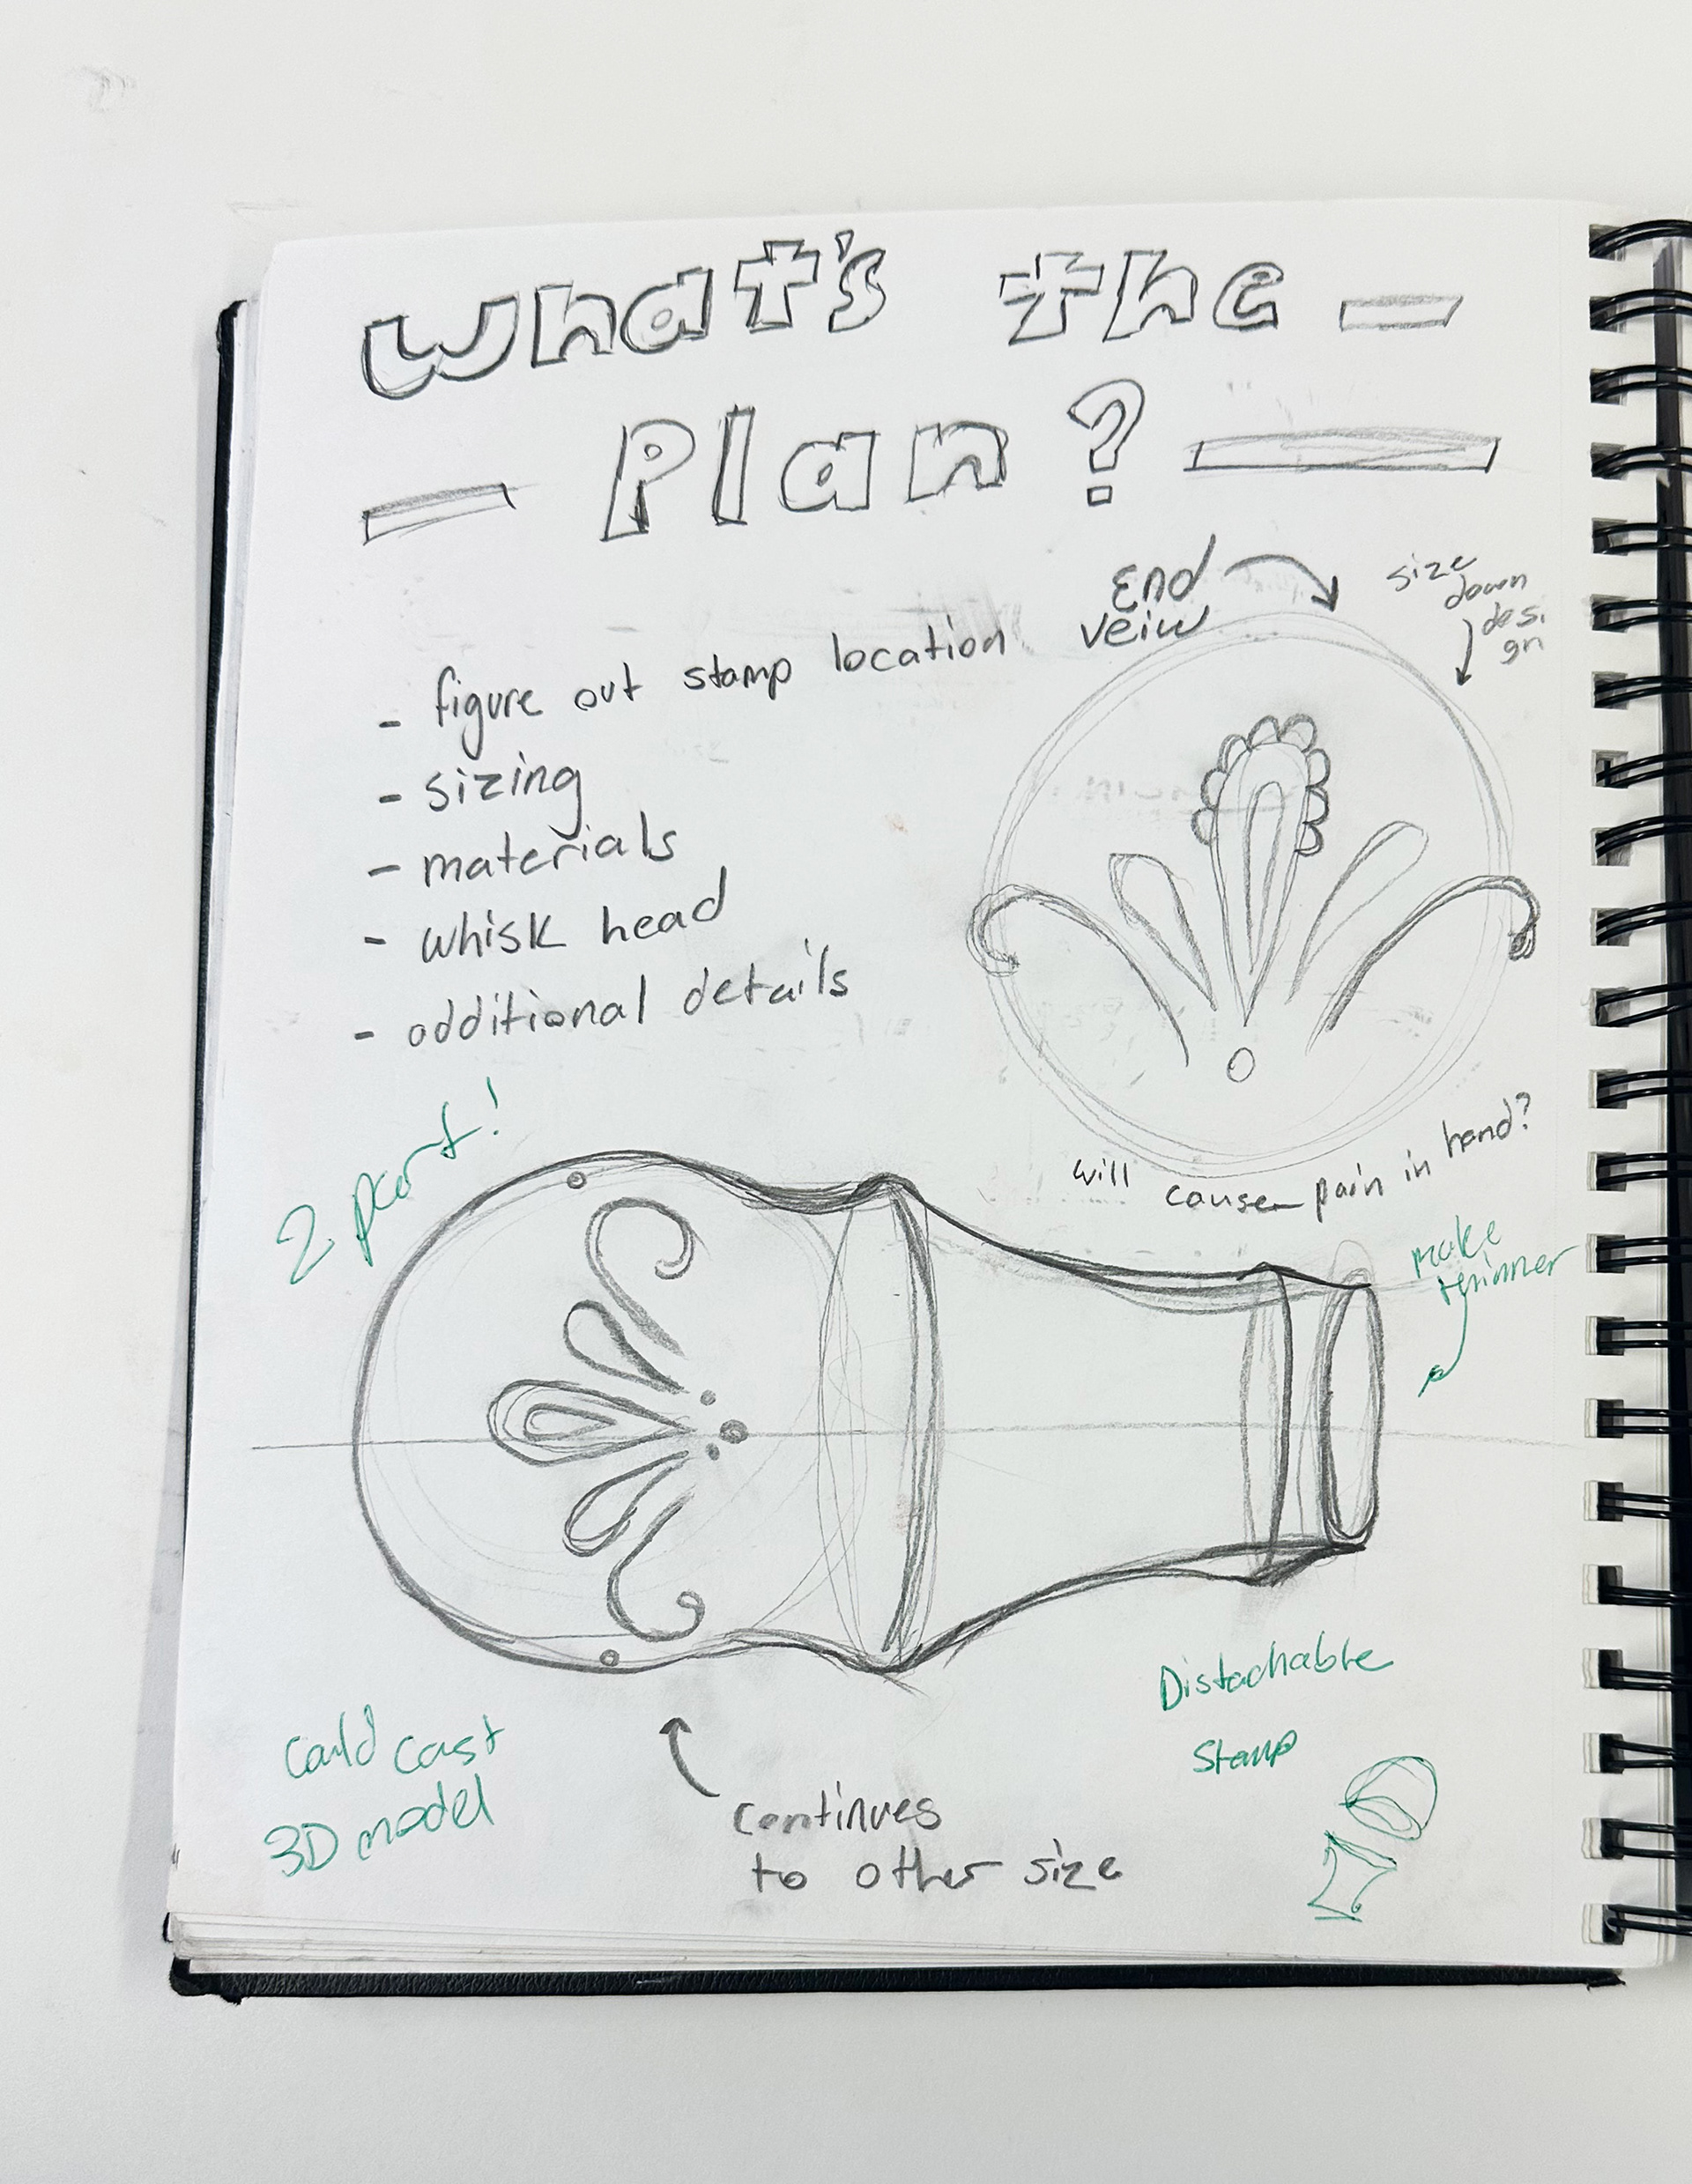 What's the
Plan?
End
veiw
size
down
desi
gn
- figure out stamp location
- sizing
- materials
- whisk head
- additional details
2 part!
will cause pain in hand?
make
thinner
Distachable
Stamp
Could cast
3D model
continues
to other size